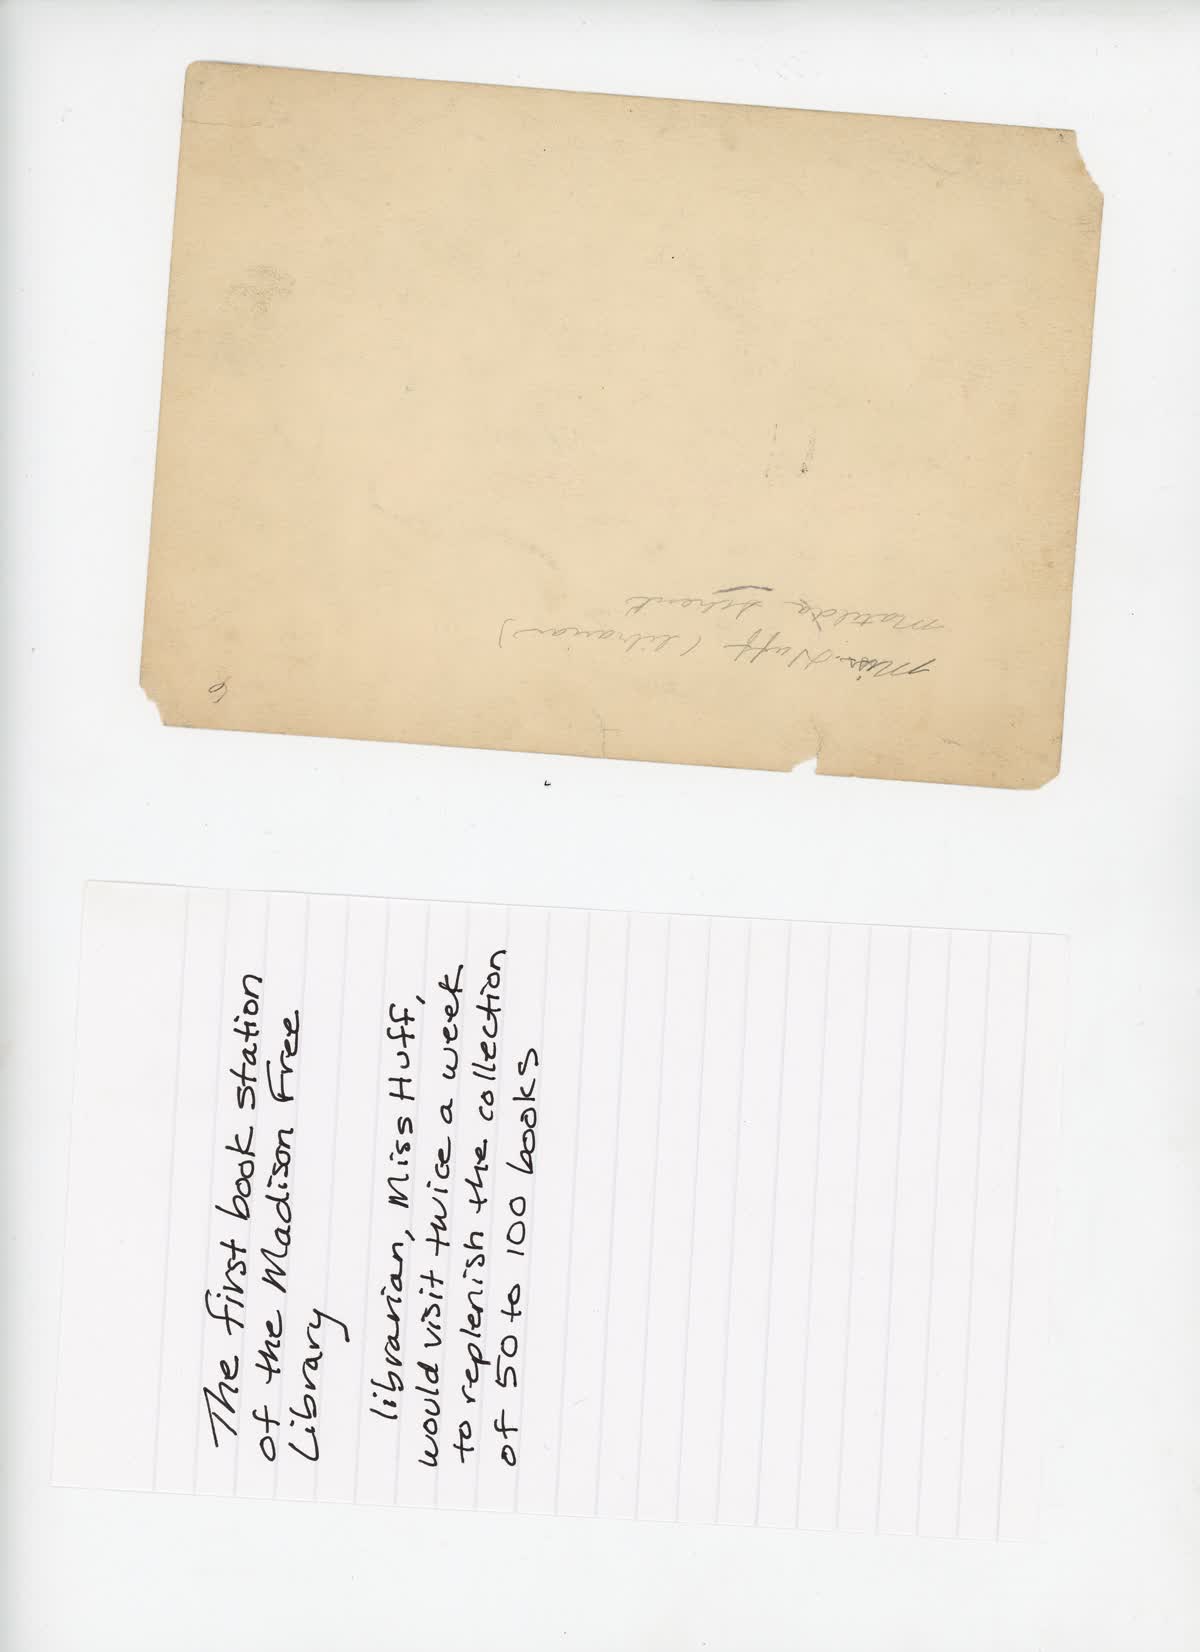 Miss Huff (librarian)
Matilda Schenk
6
The first book station
of the Madison Free
Library
librarian, Miss Huff,
would visit twice a week
to replenish the collection
of 50 to 100 books